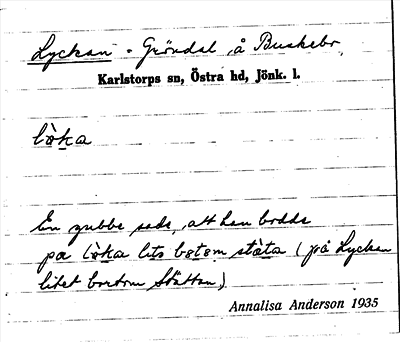 Lyckan = Gröndal, å Buskebo,
Karlstorps sn, Östra hd, Jönk. l.
lòka
En gubbe sade, att han bodde
pa lòka lits botom stàta (på Lyckan
litet bortom Stättan)
Annalisa Anderson 1935